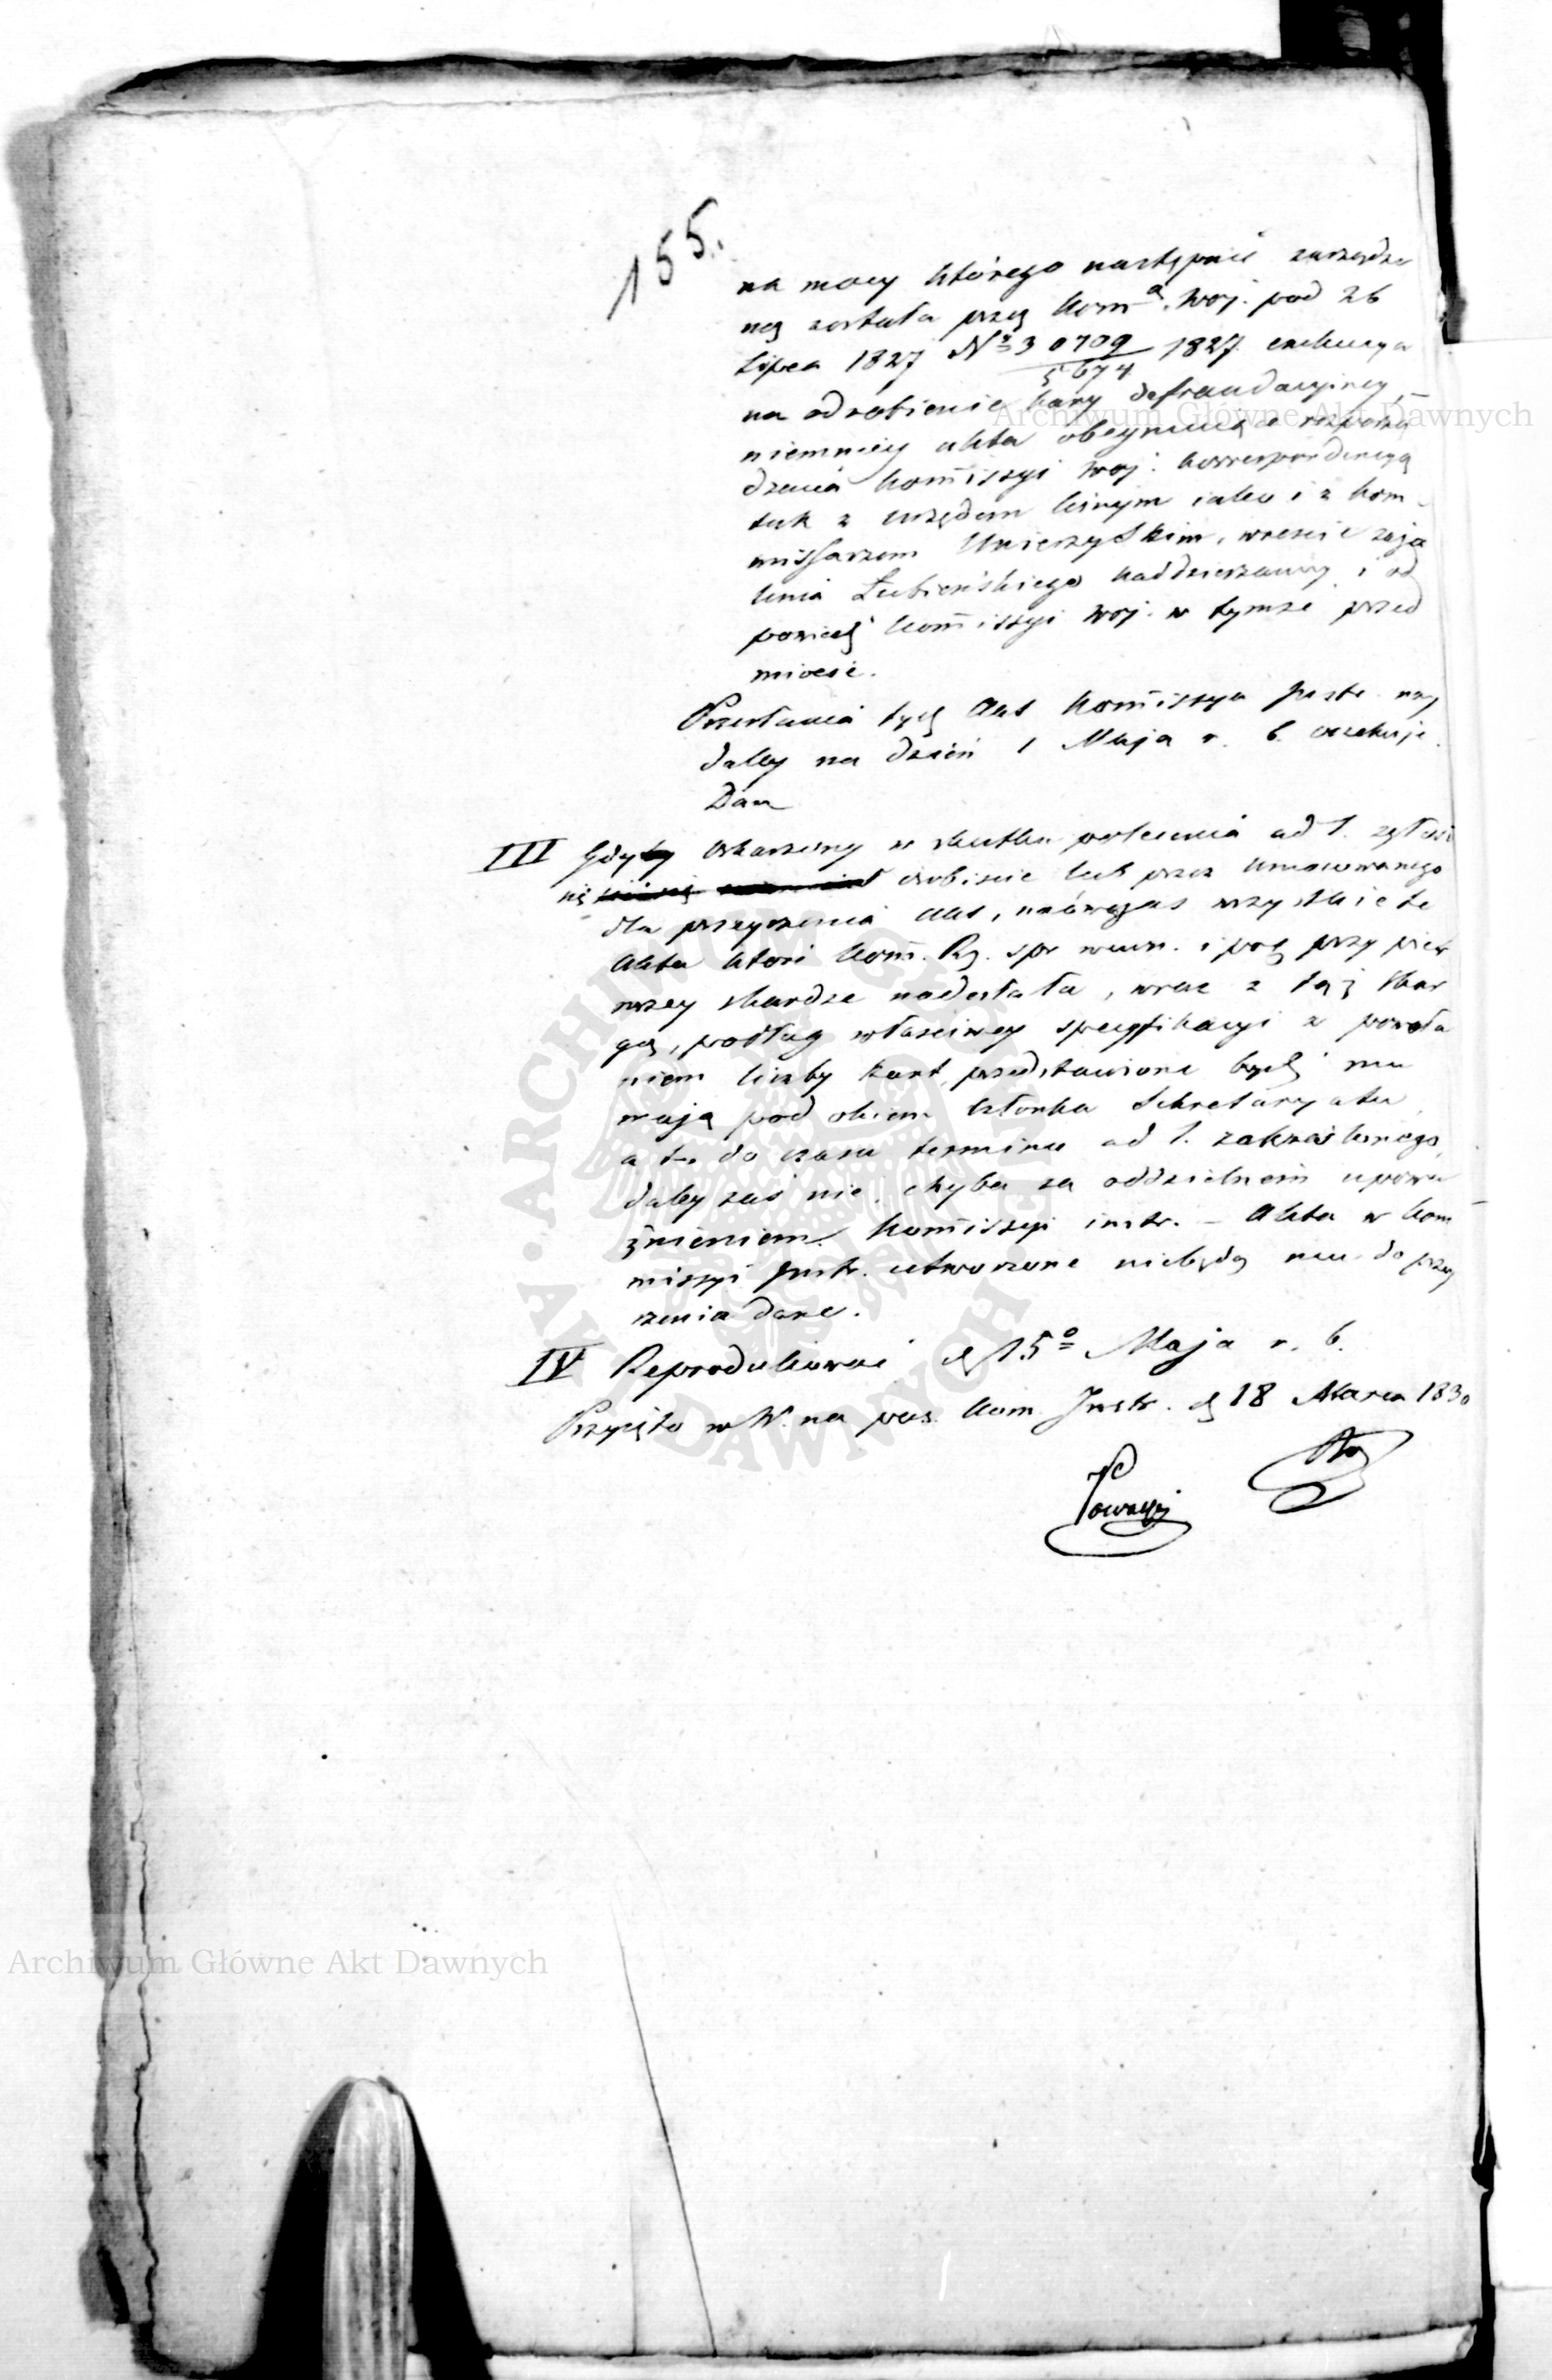 155.
na mocy którego następnie zarządzo
ną została przez Kom. Woj. pod 26
Lipca 1827 No 30709/5674 1827. exekucya
na odrobienie kary defraudacyiney,
niemniey akta obeymuiące rozporzą
dzenia Kommissyi Woj. korrespondencyą
tak z urzędem leśnym iako i z Kom
missarzem, wreszcie zaża
lenia Łubieńskiego Naddzierżawcy i od
powiedź Kommissyi Woj. w tymże przed
miocie.
Przesłania tych Akt Kommissya Instr. nay
daley na dzień 1 Maja r. b. oczekuje.
Dan
III Gdyby oskarżony w skutku polecenia ad 1. zgłosi
się osobiście lub przez umocowanego
dla przeyrzenia Akt, naówczas wszystkie te
Akta które Kom. Rz. spr wewn. i pol przy pier
wszey skardze nadesłała, wraz z tąż skar
gą, podług właściwey specyfikacyi z powoła
niem liczby kart, przedstawione bydź mu
mają pod okiem członka Sekretaryatu,
a to do czasu terminu ad 1. zakreślonego,
daley zaś nie, chyba za oddzielnem upowa
żnieniem Kommissyi instr. – Akta w Kom
missyi Instr. utworzone niebędą mu do przey
rzenia dane.
IV Reprodukować d 15o Maja r. b.
Przyjęto w W. na pos. Kom. Instr. d 18 Marca 1830
Archiwum Główne Akt Dawnych
Archiwum Główne Akt Dawnych
ARCHIWUM GŁÓWNE AKT DAWNYCH